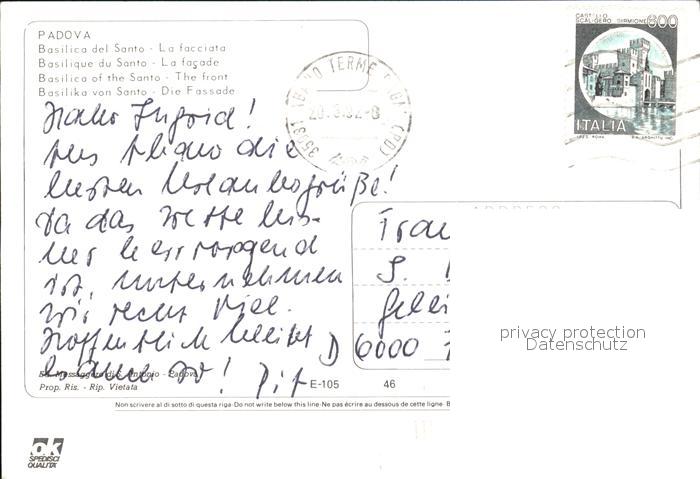 PADOVA
Basilica del Santo - La facciata
Basilique du Santo - La façade
Basilica of the Santo - The front
Basilika von Santo - Die Fassade
CASTELLO
SCALIGERO SIRMIONE 600
ITALIA
35031 ABANO TERME
Hallo Ingrid!
Aus Abano die
besten Urlaubsgrüße!
Da das Wetter bis-
her hervorragend
ist, unternehmen
wir recht viel.
Hoffentlich bleibt
es auch so! Pit
Frau
D 6000
privacy protection
Datenschutz
Ed. Messaggero di S. Antonio - Padova
Prop. Ris. - Rip. Vietata
E-105 46
Non scrivere al di sotto di questa riga - Do not write below this line - Ne pas écrire au dessous de cette ligne - B
ok
SPEDISCI
QUALITA'